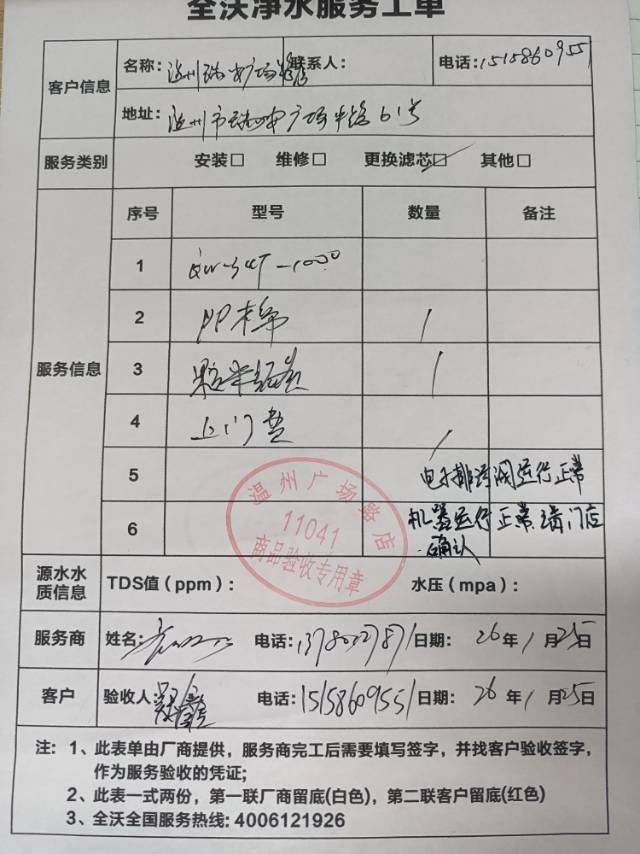 全沃净水服务工单
客户信息
名称：温州瑞安广场路店 联系人： 电话：15158609551
地址：温州市瑞安广场中路61号
服务类别 安装□ 维修□ 更换滤芯☑ 其他□
服务信息
序号 型号 数量 备注
1 QW-SWT-1000
2 PP棉 1
3 1
4 上门费 1
5 电子排污阀运行正常
6 机器运行正常 请门店确认
温州广场路店
11041
商品验收专用章
源水水质信息 TDS值（ppm）： 水压（mpa）：
服务商 姓名： 电话：13780327871 日期：26年1月25日
客户 验收人： 电话：15158609551 日期：26年1月25日
注：1、此表单由厂商提供，服务商完工后需要填写签字，并找客户验收签字，
作为服务验收的凭证；
2、此表一式两份，第一联厂商留底(白色)，第二联客户留底(红色)
3、全沃全国服务热线：4006121926